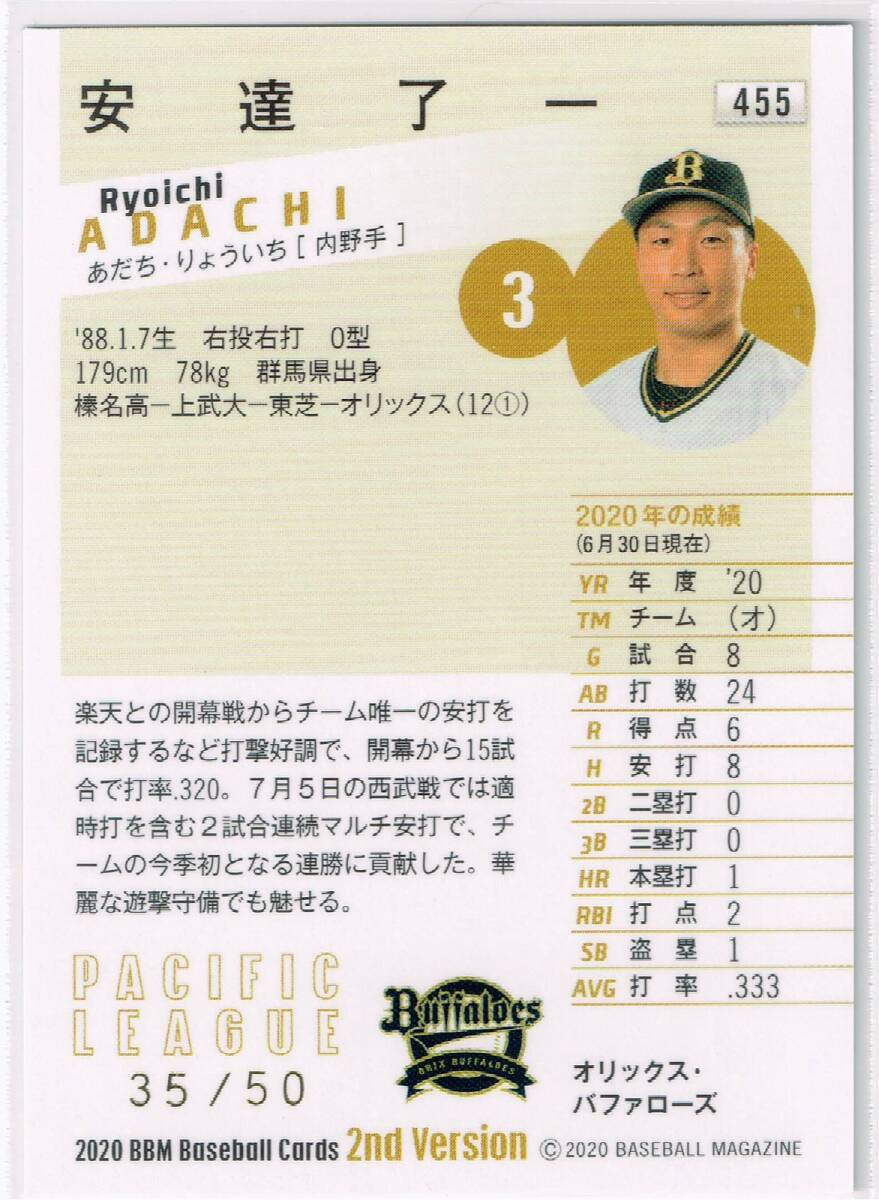 安達了一
455
Ryoichi
ADACHI
あだち・りょういち［内野手］
B
3
'88.1.7生 右投右打 O型
179cm 78kg 群馬県出身
榛名高－上武大－東芝－オリックス（12①）
2020年の成績
(6月30日現在)
YR 年度 '20
TM チーム (オ)
G 試合 8
AB 打数 24
R 得点 6
H 安打 8
2B 二塁打 0
3B 三塁打 0
HR 本塁打 1
RBI 打点 2
SB 盗塁 1
AVG 打率 .333
楽天との開幕戦からチーム唯一の安打を
記録するなど打撃好調で、開幕から15試
合で打率.320。７月５日の西武戦では適
時打を含む２試合連続マルチ安打で、チ
ームの今季初となる連勝に貢献した。華
麗な遊撃守備でも魅せる。
PACIFIC
LEAGUE
35/50
Buffaloes
ORIX BUFFALOES
オリックス・
バファローズ
2020 BBM Baseball Cards 2nd Version © 2020 BASEBALL MAGAZINE